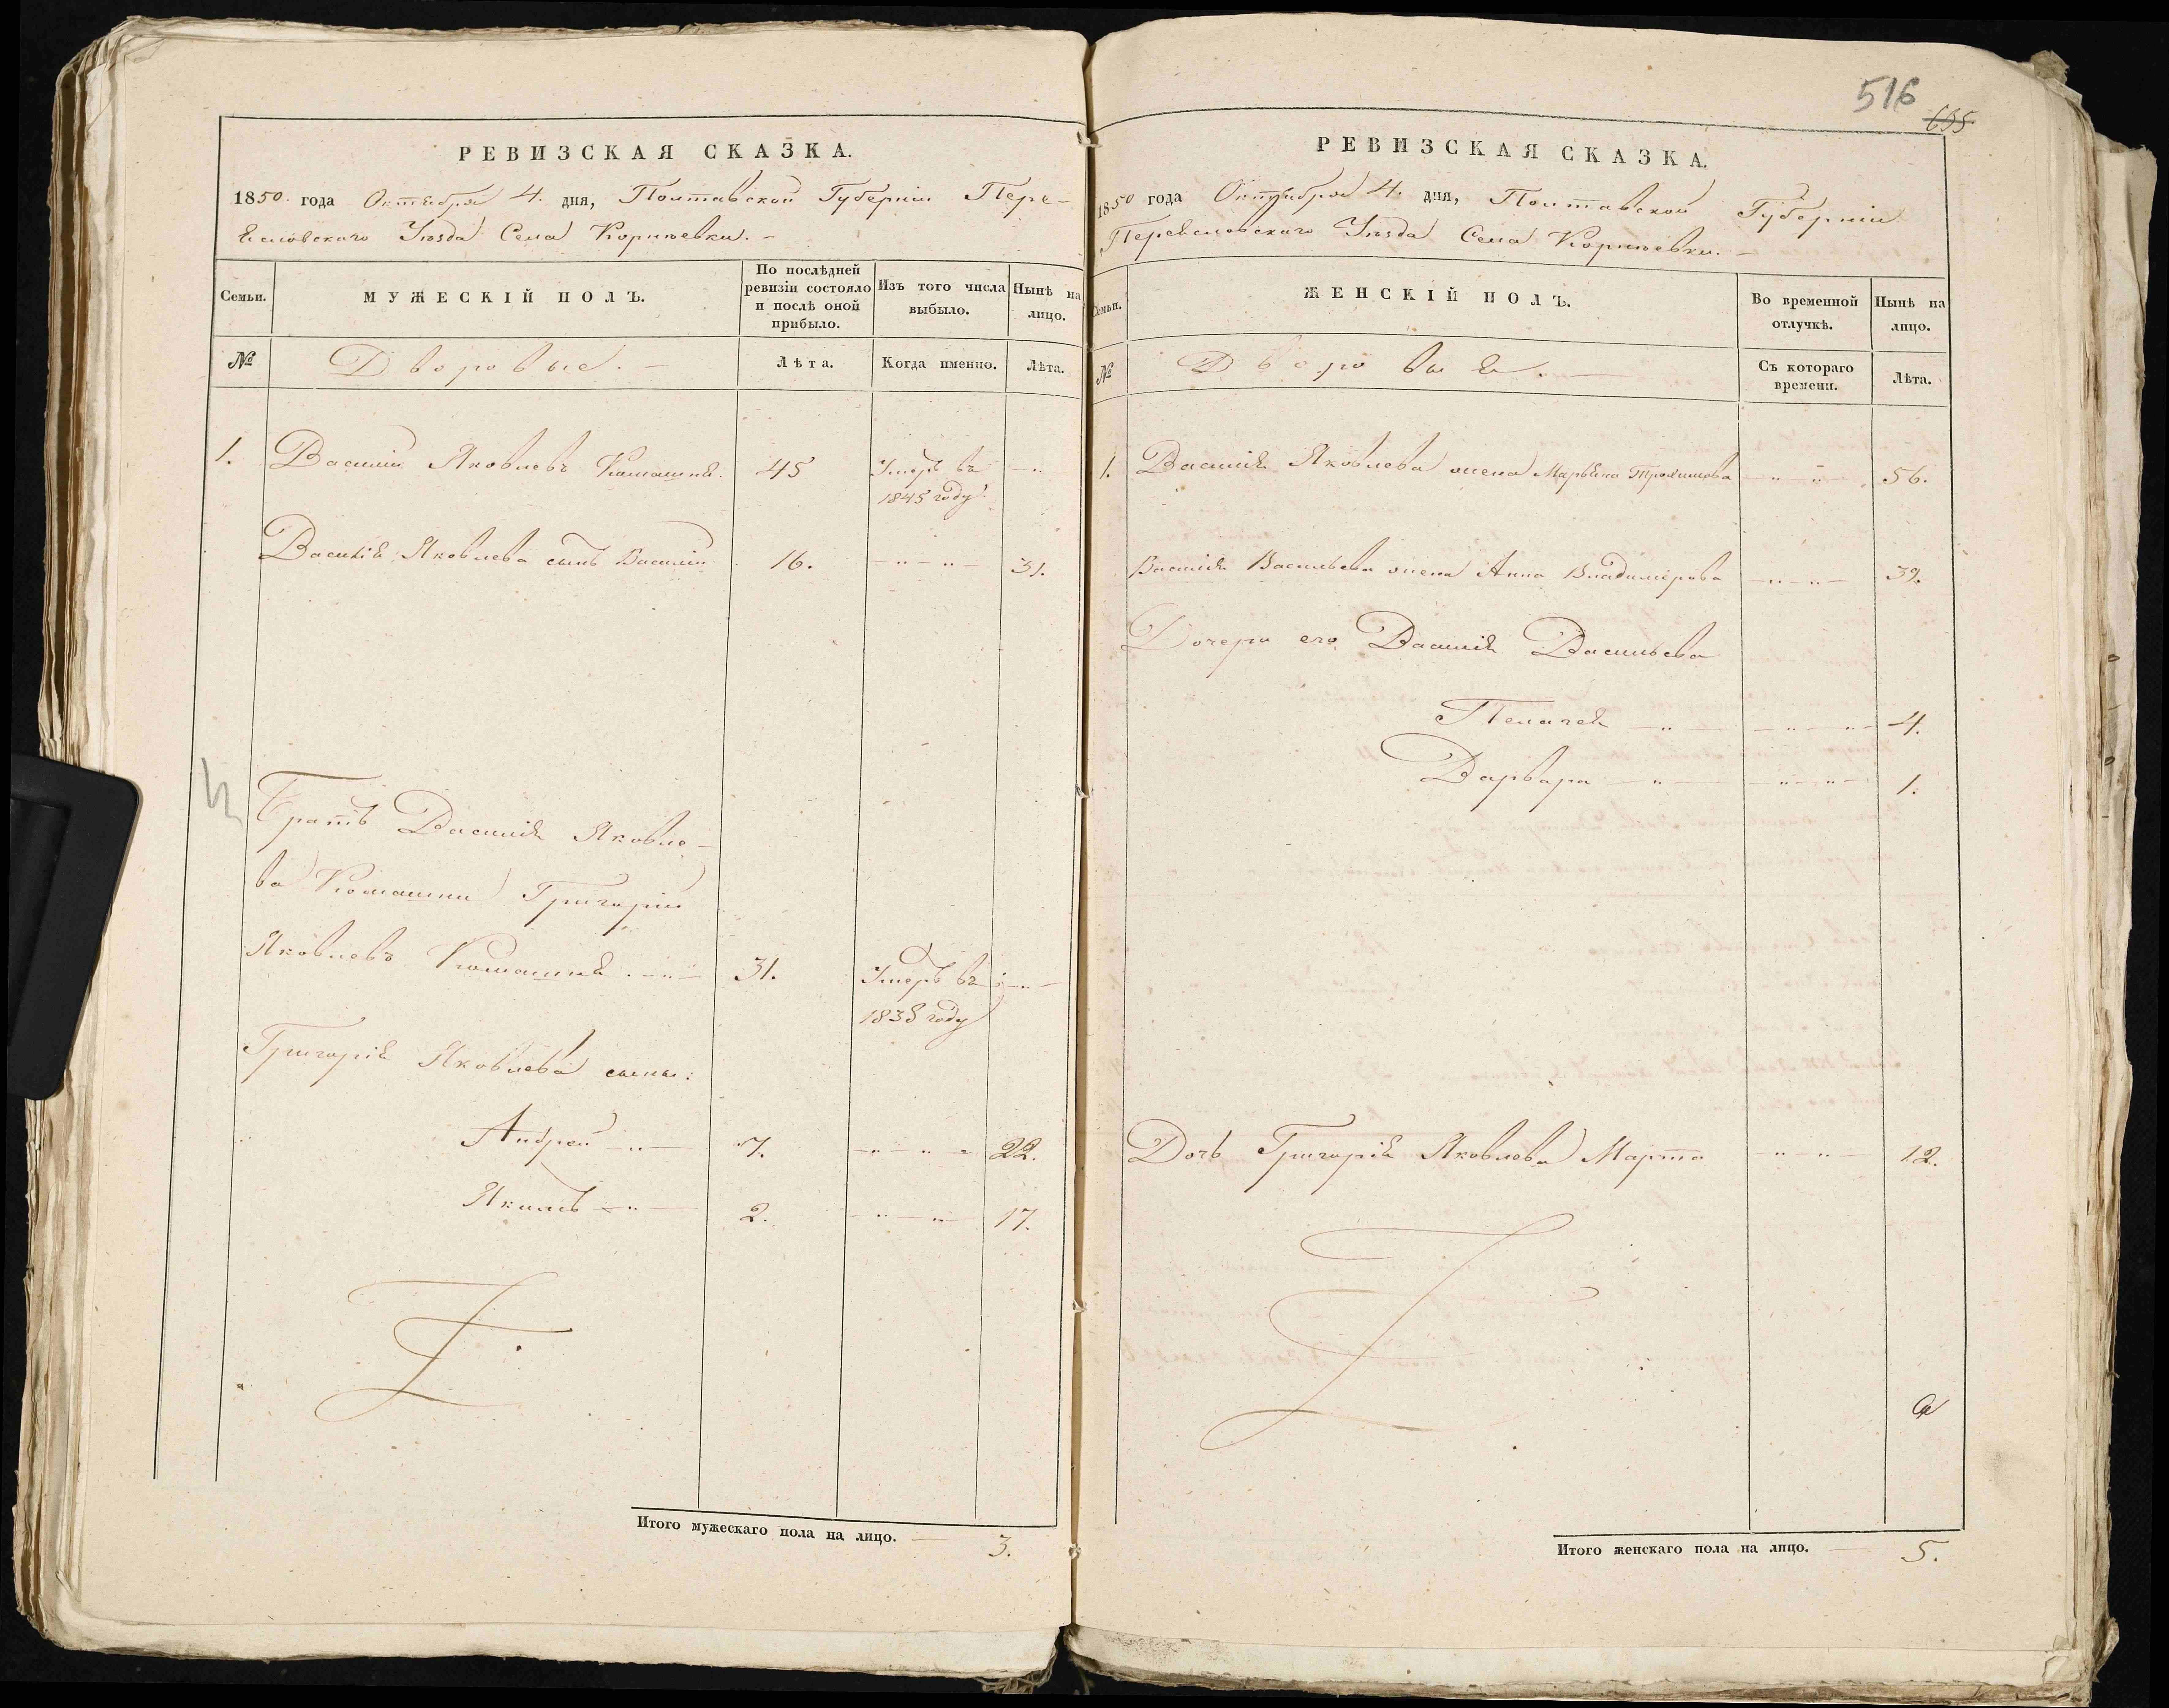 516
655
РЕВИЗСКАЯ СКАЗКА.
1850. года Октября 4. дня, Полтавской Губерніи Пере-
яславскаго Уѣзда Села Корнѣевки. -
Семьи.
МУЖЕСКІЙ ПОЛЪ.
По послѣдней ревизіи состояло и послѣ оной прибыло.
Изъ того числа выбыло.
Нынѣ на лицо.
№
Дворовые. -
Лѣта.
Когда именно.
Лѣта.
1. Василій Яковлевъ 45 Умеръ въ
1845 году.
Василія Яковлева сынъ Василій 16. 31.
Братъ Василія Яковле-
ва Григорій
Яковлевъ 31. Умеръ въ
1838 году
Григорія Яковлева сыны:
Андрей 7. 22.
Якимъ 2. 17.
Итого мужескаго пола на лицо. — 3.
РЕВИЗСКАЯ СКАЗКА.
1850 года Октября 4. дня, Полтавской Губерніи
Переяславскаго Уѣзда Села Корнѣевки. -
Семьи.
ЖЕНСКІЙ ПОЛЪ.
Во временной отлучкѣ.
Нынѣ на лицо.
№
Дворовыя. -
Съ котораго времени.
Лѣта.
1. Василія Яковлева жена Марьяна Трофимова 56.
Василія Васильева жена Анна Владимерова 32.
Дочери его Василія Васильева
Пелагея 4.
Варвара 1.
Дочь Григорія Яковлева Марта 12.
Итого женскаго пола на лицо. — 5.